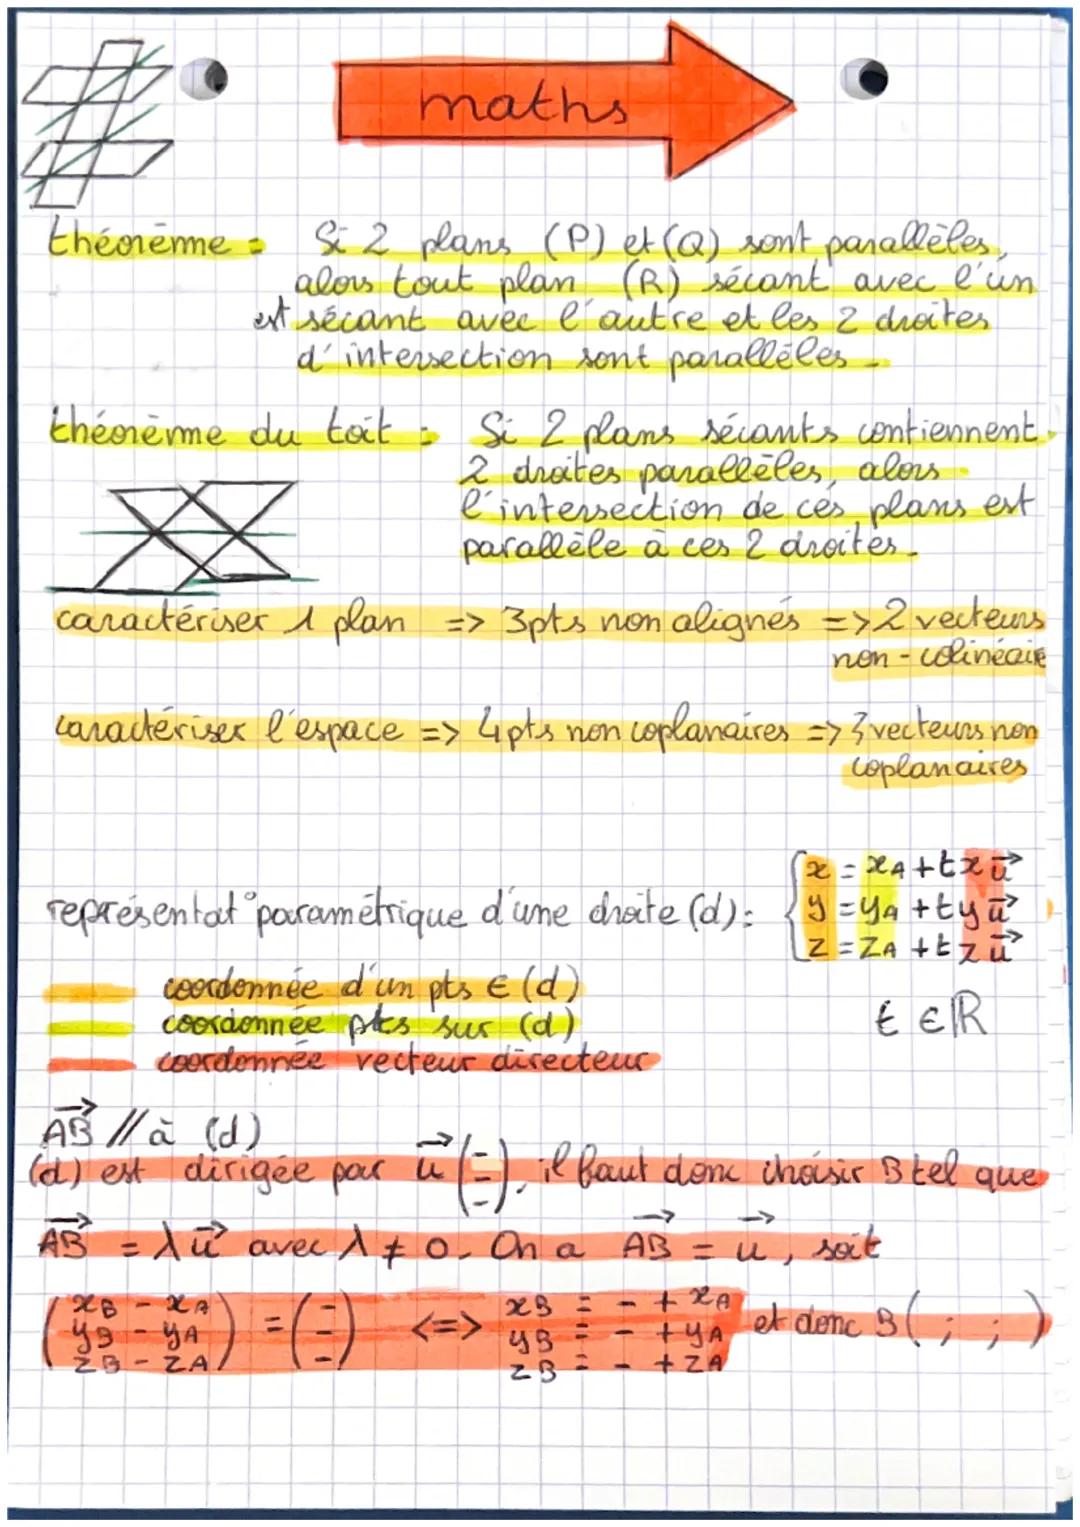 maths
théorème : Si 2 plans (P) et (Q) sont parallèles,
alors tout plan (R) sécant avec l'un
est sécant avec l'autre et les 2 droites
d'intersection sont parallèles.
théorème du toit : Si 2 plans sécants contiennent
2 droites parallèles, alors
l'intersection de ces plans est
parallèle à ces 2 droites.
caractériser 1 plan => 3pts non alignés => 2 vecteurs
non-colinéaire
caractériser l'espace => 4pts non coplanaires => 3 vecteurs non
coplanaires
représentat° paramétrique d'une droite (d) : { x = xA + t x u⃗
y = yA + t y u⃗
z = zA + t z u⃗
coordonnée d'un pts ∈ (d)
t ∈ ℝ
coordonnée pts sur (d)
coordonnée vecteur directeur
AB⃗ // à (d)
(d) est dirigée par u⃗ (- - -), il faut donc choisir B tel que
AB⃗ = λu⃗ avec λ ≠ 0. On a AB⃗ = u⃗, soit
(xB - xA) = (-) <=> xB = - + xA et donc B ( ; ; )
(yB - yA) (-) yB = - + yA
(zB - zA) (-) zB = - + zA